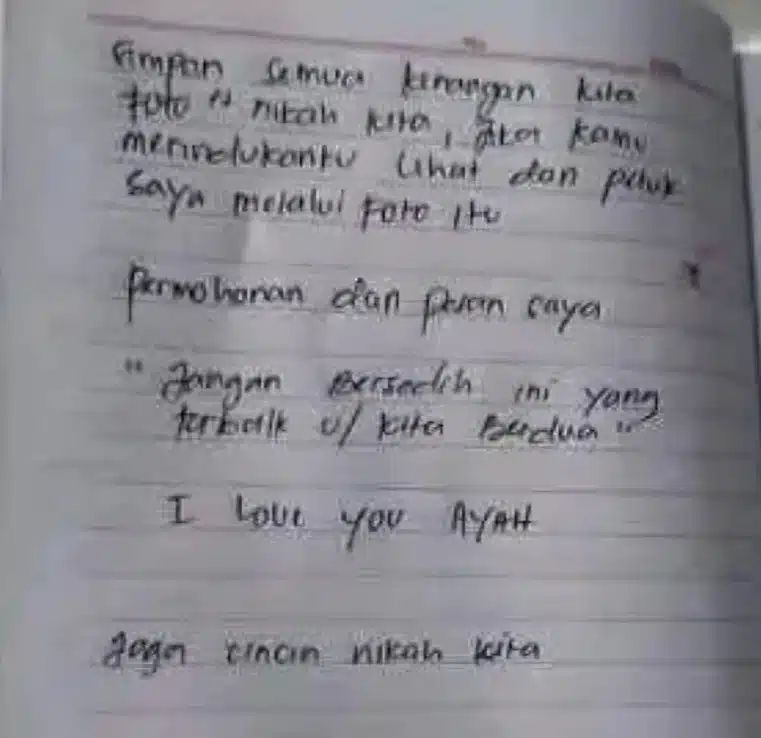 Simpan semua kenangan kita
foto " nikah kita, jika kamu
merindukanku lihat dan peluk
saya melalui foto itu
permohonan dan pesan saya
" Jangan Bersedih ini yang
terbaik u/ kita Berdua "
I Love you AYAH
Jaga cincin nikah kita